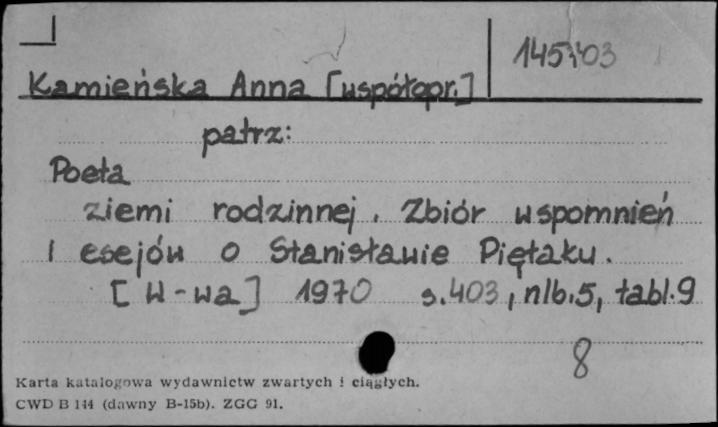 145403
Kamieńska Anna [współopr.]
patrz:
Poeta
ziemi rodzinnej. Zbiór wspomnień
i esejów o Stanisławie Piętaku.
[W-wa] 1970 s.403, nlb.5, tabl.9
8
Karta katalogowa wydawnictw zwartych i ciągłych.
CWD B 144 (dawny B-15b). ZGG 91.